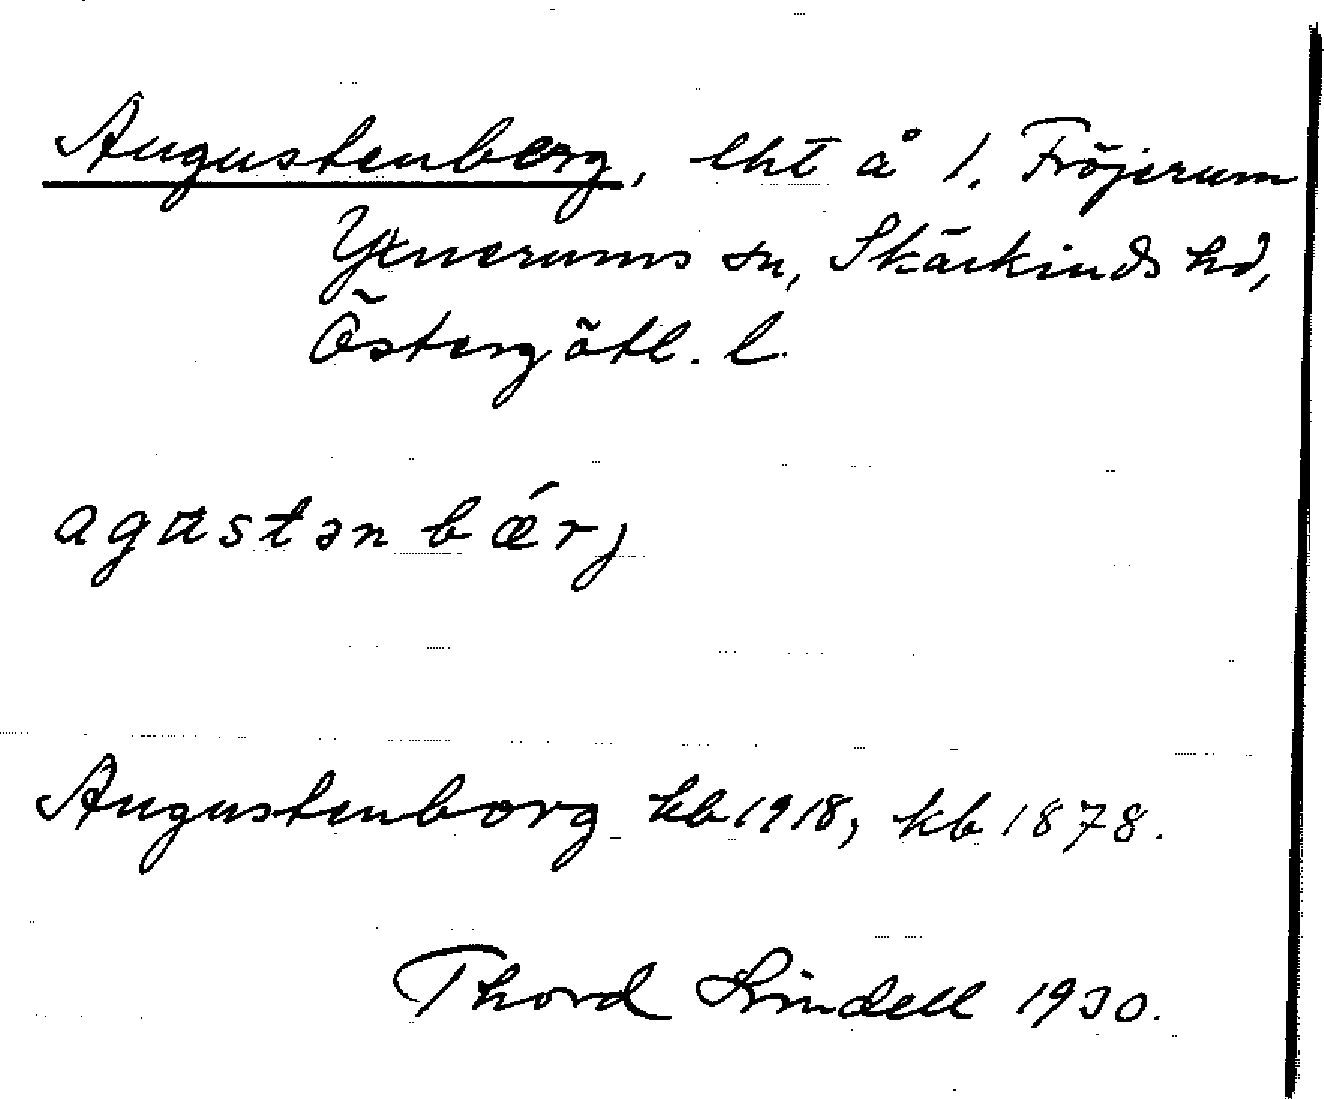 Augustenberg, lht å 1. Fröjerum
Yxnerums sn, Skärkinds hd,
Östergötl. l.
agustən bǽrj
Augustenborg kb 1918, kb 1878.
Thord Lindell 1930.